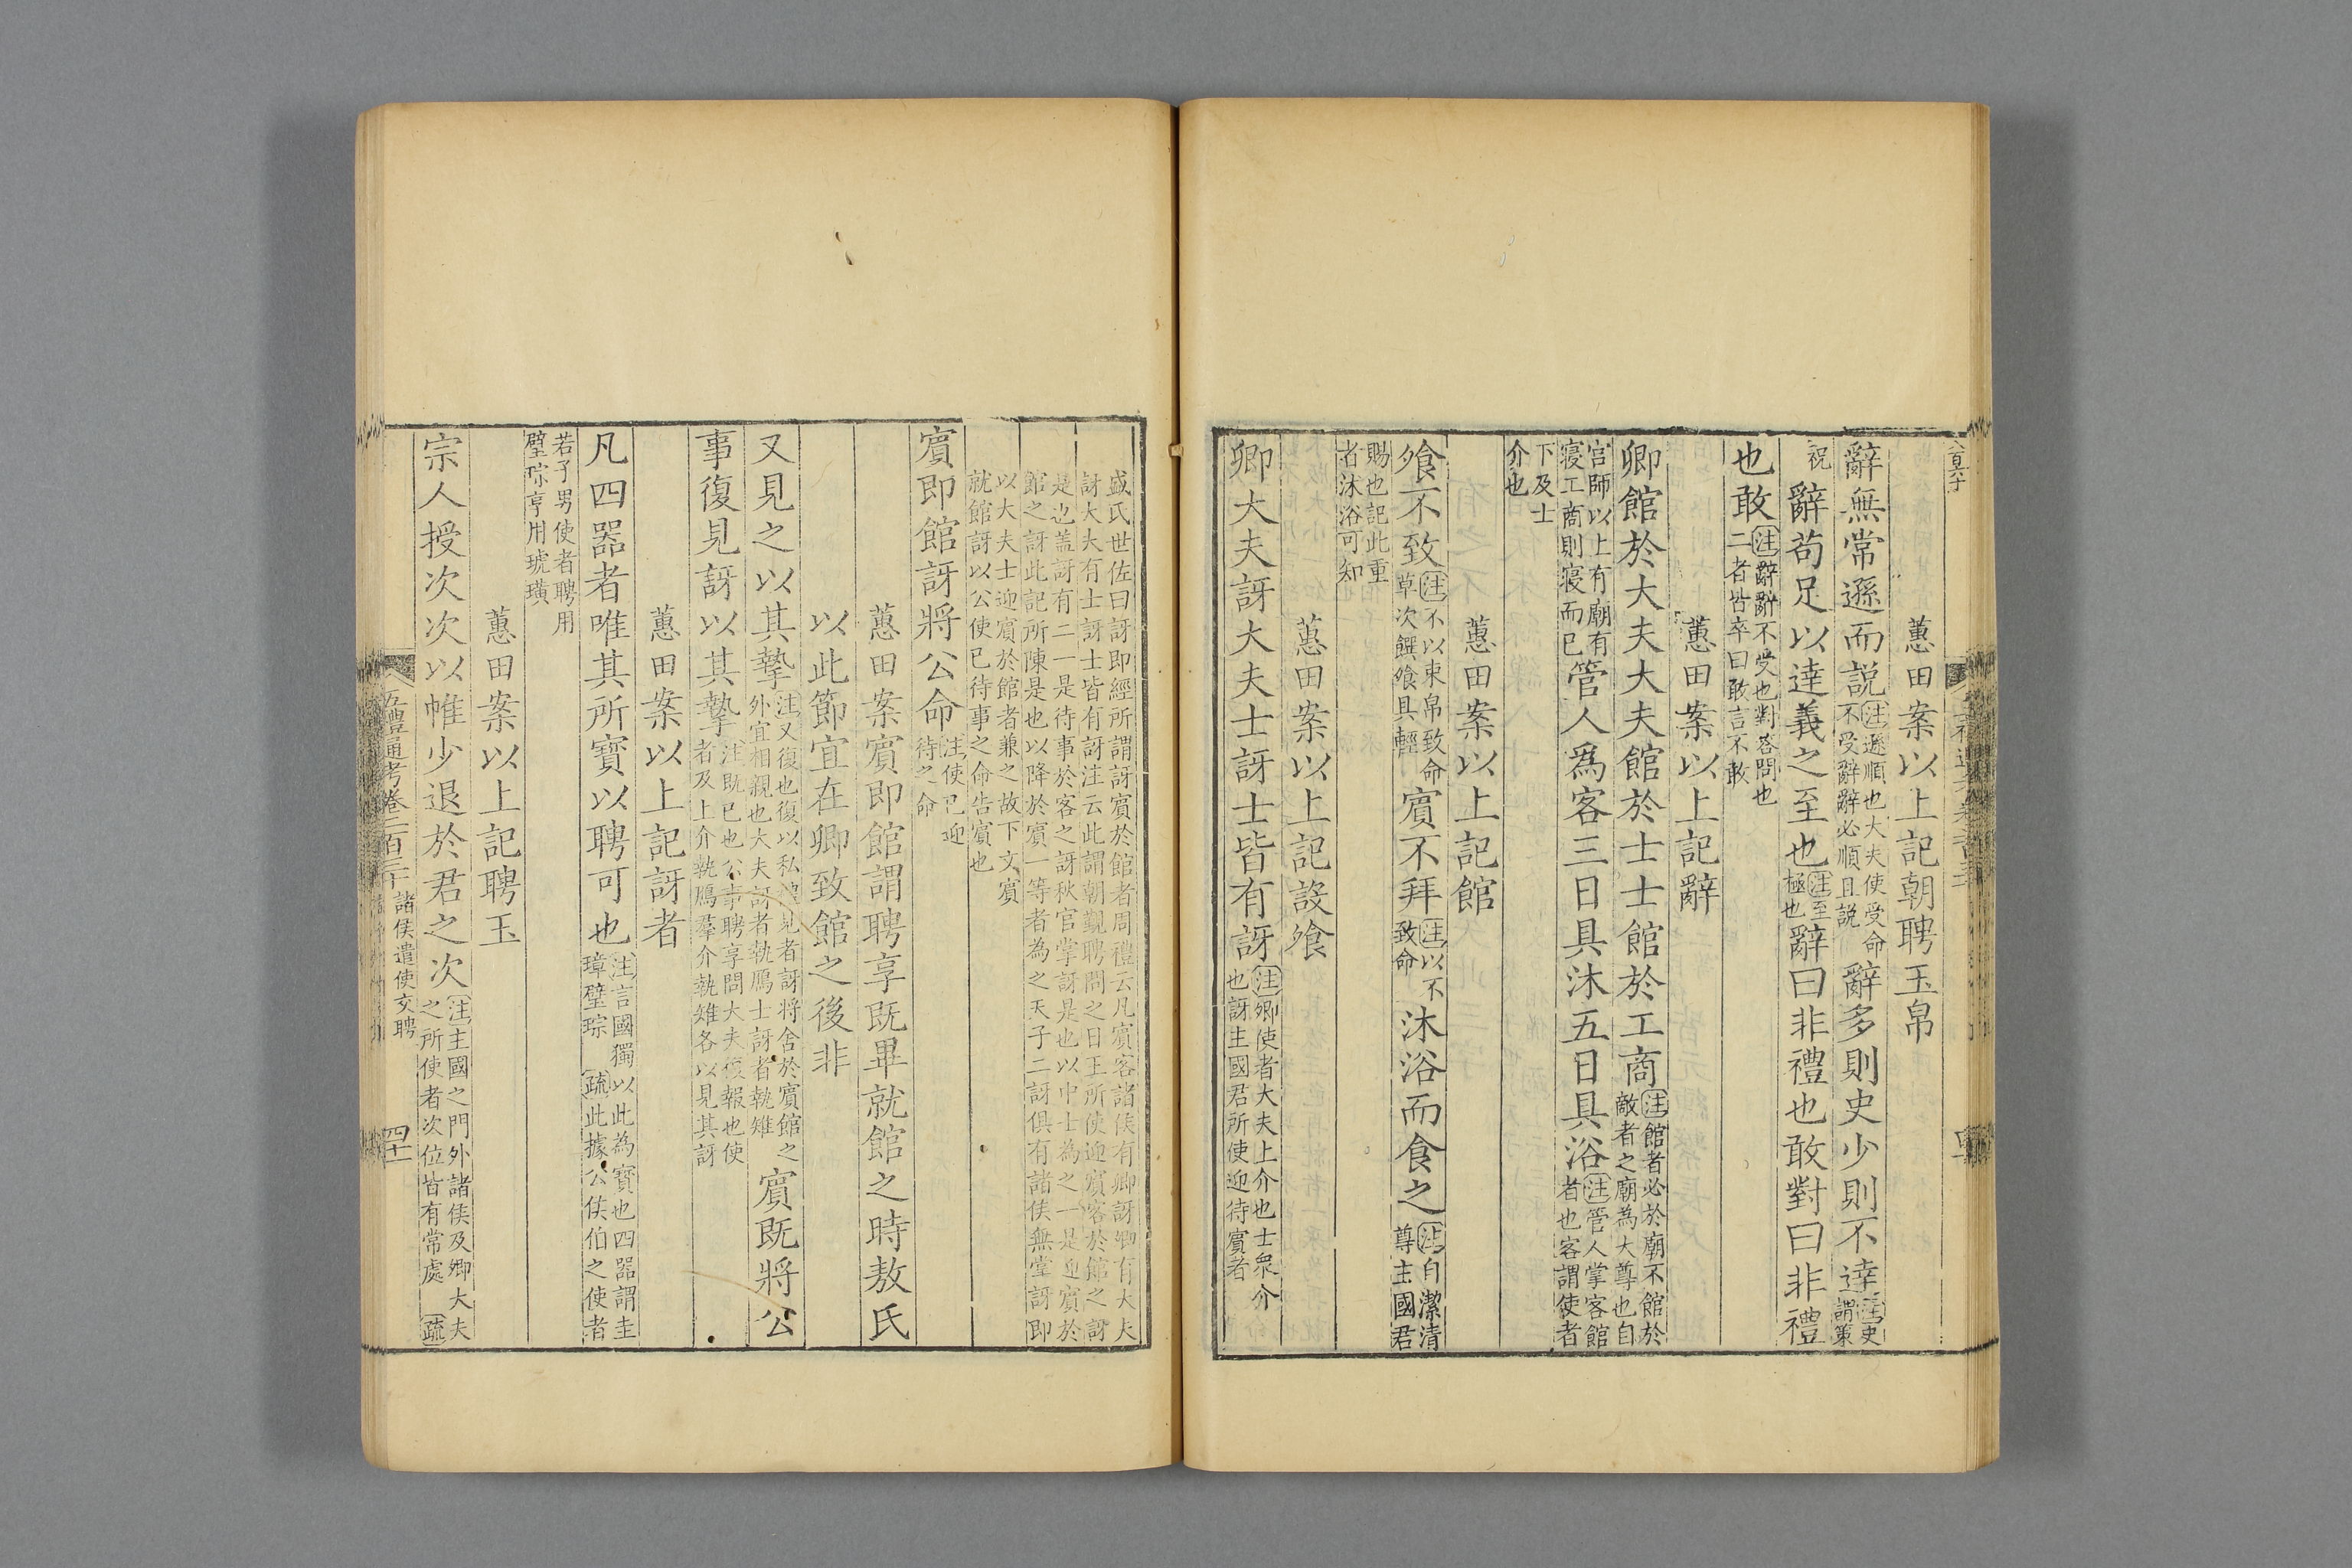 蕙田案以上記朝聘玉帛
辭無常遜而説注遜順也大夫使受命不受辭辭必順且説辭多則史少則不達注史謂策
祝辭苟足以達義之至也注至極也辭曰非禮也敢對曰非禮
也敢注辭辭不受也對荅問也二者皆卒曰敢言不敢
蕙田案以上記辭
卿館於大夫大夫館於士士館於工商注館者必於廟不館於敵者之廟為大尊也自
官師以上有廟有寢工商則寢而已管人爲客三日具沐五日具浴注管人掌客館者也客謂使者
下及士介也
蕙田案以上記館
飧不致注不以束帛致命草次饌飧具輕賓不拜注以不致命沐浴而食之注自潔清尊主國君
賜也記此重者沐浴可知
蕙田案以上記設飧
卿大夫訝大夫士訝士皆有訝注卿使者大夫上介也士衆介也訝主國君所使迎待賓者
盛氏世佐曰訝即經所謂訝賓於館者周禮云凡賓客諸侯有卿訝卿有大夫
訝大夫有士訝士皆有訝注云此謂朝覲聘問之日王所使迎賓客於館之訝
是也盖訝有二一是待事於客之訝秋官掌訝是也以中士為之一是迎賓於
館之訝此記所陳是也以降於賓一等者為之天子二訝俱有諸侯無掌訝即
以大夫士迎賓於館者兼之故下文賓
就館訝以公使已待事之命告賓也
賓即館訝將公命注使已迎待之命
蕙田案賓即館謂聘享既畢就館之時敖氏
以此節宜在卿致館之後非
又見之以其摯注又復也復以私禮見者訝將舍於賓館之外宜相親也大夫訝者執鴈士訝者執雉賓既將公
事復見訝以其摯注既已也公事聘享問大夫復報也使者及上介執鴈羣介執雉各以見其訝
蕙田案以上記訝者
凡四器者唯其所寳以聘可也注言國獨以此為寳也四器謂圭璋璧琮疏此據公侯伯之使者
若子男使者聘用璧琮享用琥璜
蕙田案以上記聘玉
宗人授次次以帷少退於君之次注主國之門外諸侯及卿大夫之所使者次位皆有常處疏
五禮通考卷二百三十 諸侯遣使交聘 四十一